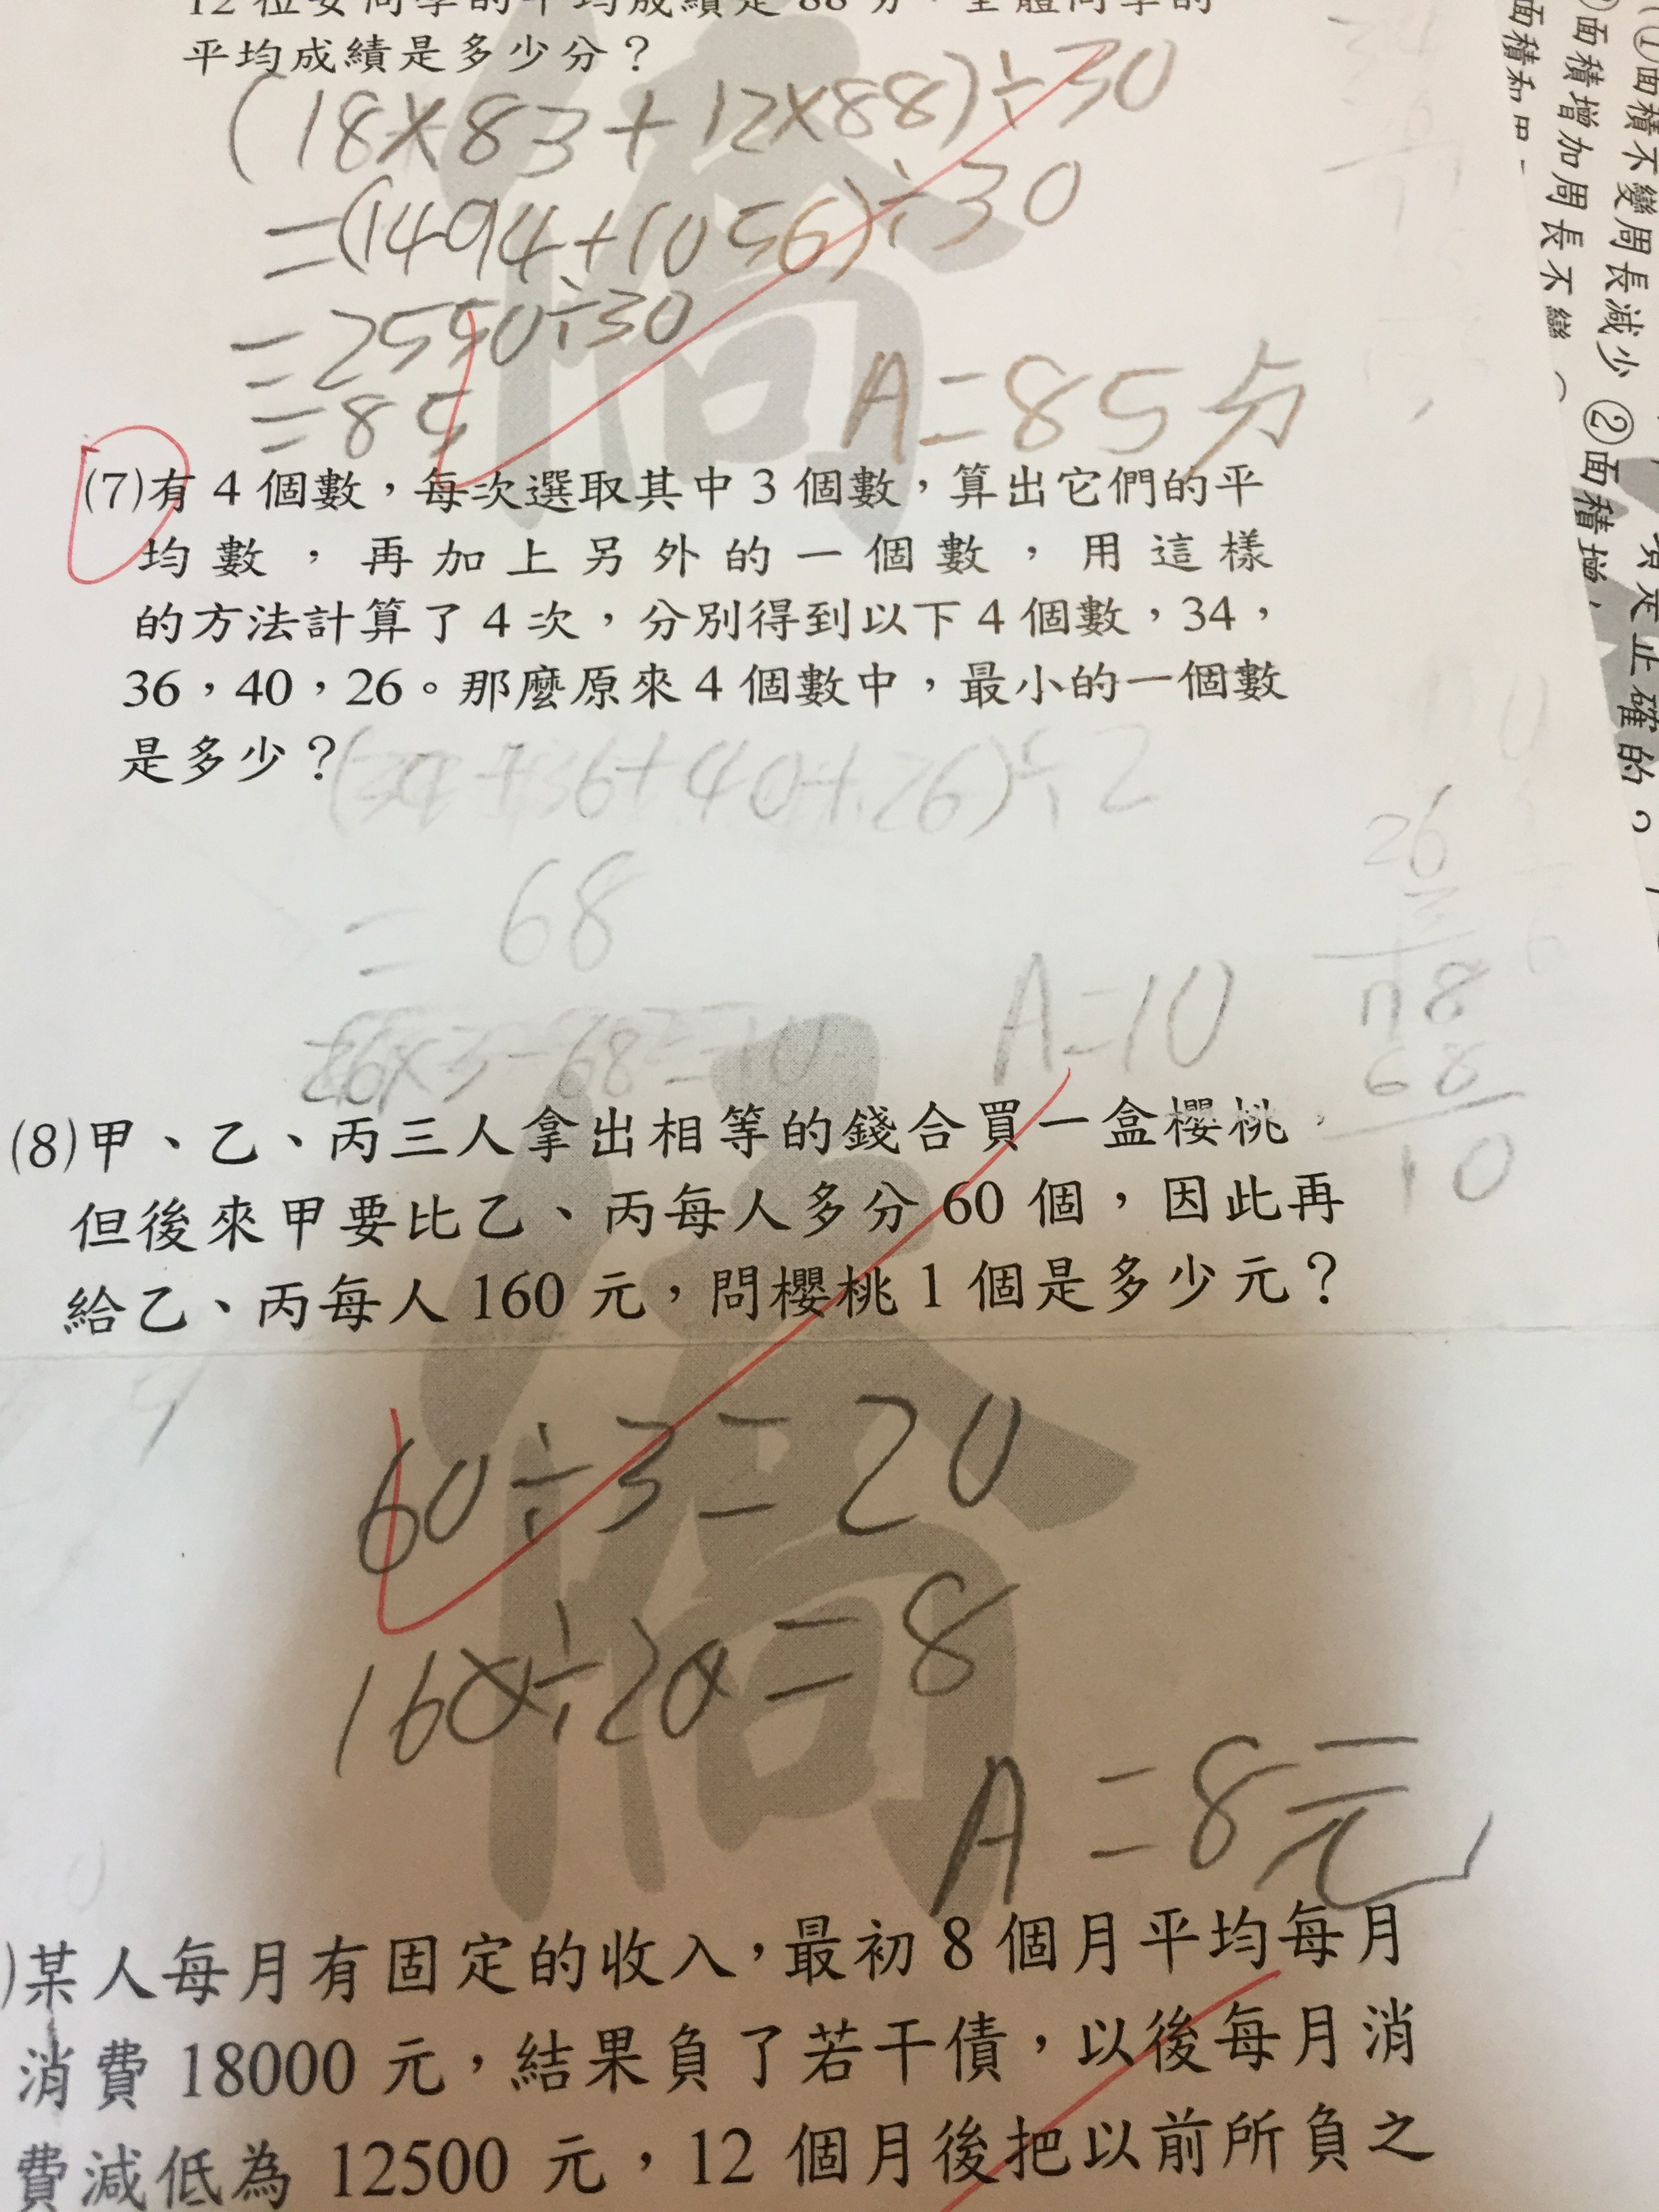 12 位女同學的平均成績是 88 分，全體同學的
平均成績是多少分？
(18×83+12×88)÷30
=(1494+1056)÷30
=2550÷30
=85
A=85分
(7)有 4 個數，每次選取其中 3 個數，算出它們的平
均數，再加上另外的一個數，用這樣
的方法計算了 4 次，分別得到以下 4 個數，34，
36，40，26。那麼原來 4 個數中，最小的一個數
是多少？
(34+36+40+26)÷2
= 68
26×3-68=10
A=10
26
3
78
68
10
(8)甲、乙、丙三人拿出相等的錢合買一盒櫻桃，
但後來甲要比乙、丙每人多分 60 個，因此再
給乙、丙每人 160 元，問櫻桃 1 個是多少元？
60÷3=20
160÷20=8
A=8元
)某人每月有固定的收入，最初 8 個月平均每月
消費 18000 元，結果負了若干債，以後每月消
費減低為 12500 元，12 個月後把以前所負之
(①面積不變周長減少 ②面積增
面積增加周長不變
面積和
是正確的？